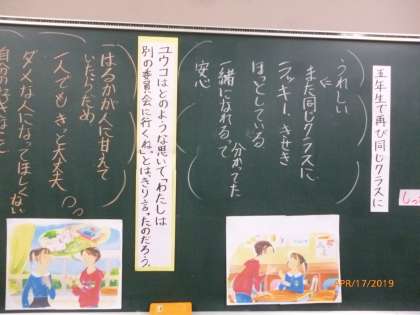 五年生で再び同じクラスに
うれしい
また同じクラスに
ラッキー、きせき
ほっとしている
分かってた
一緒になれるって
安心
ユウコはどのような思いで「わたしは
別の委員会に行くね。」とはっきり言ったのだろう。
はるかが人に甘えて
いたらだめ
一人でもきっと大丈夫
ダメな人になってほしくない
APR/17/2019